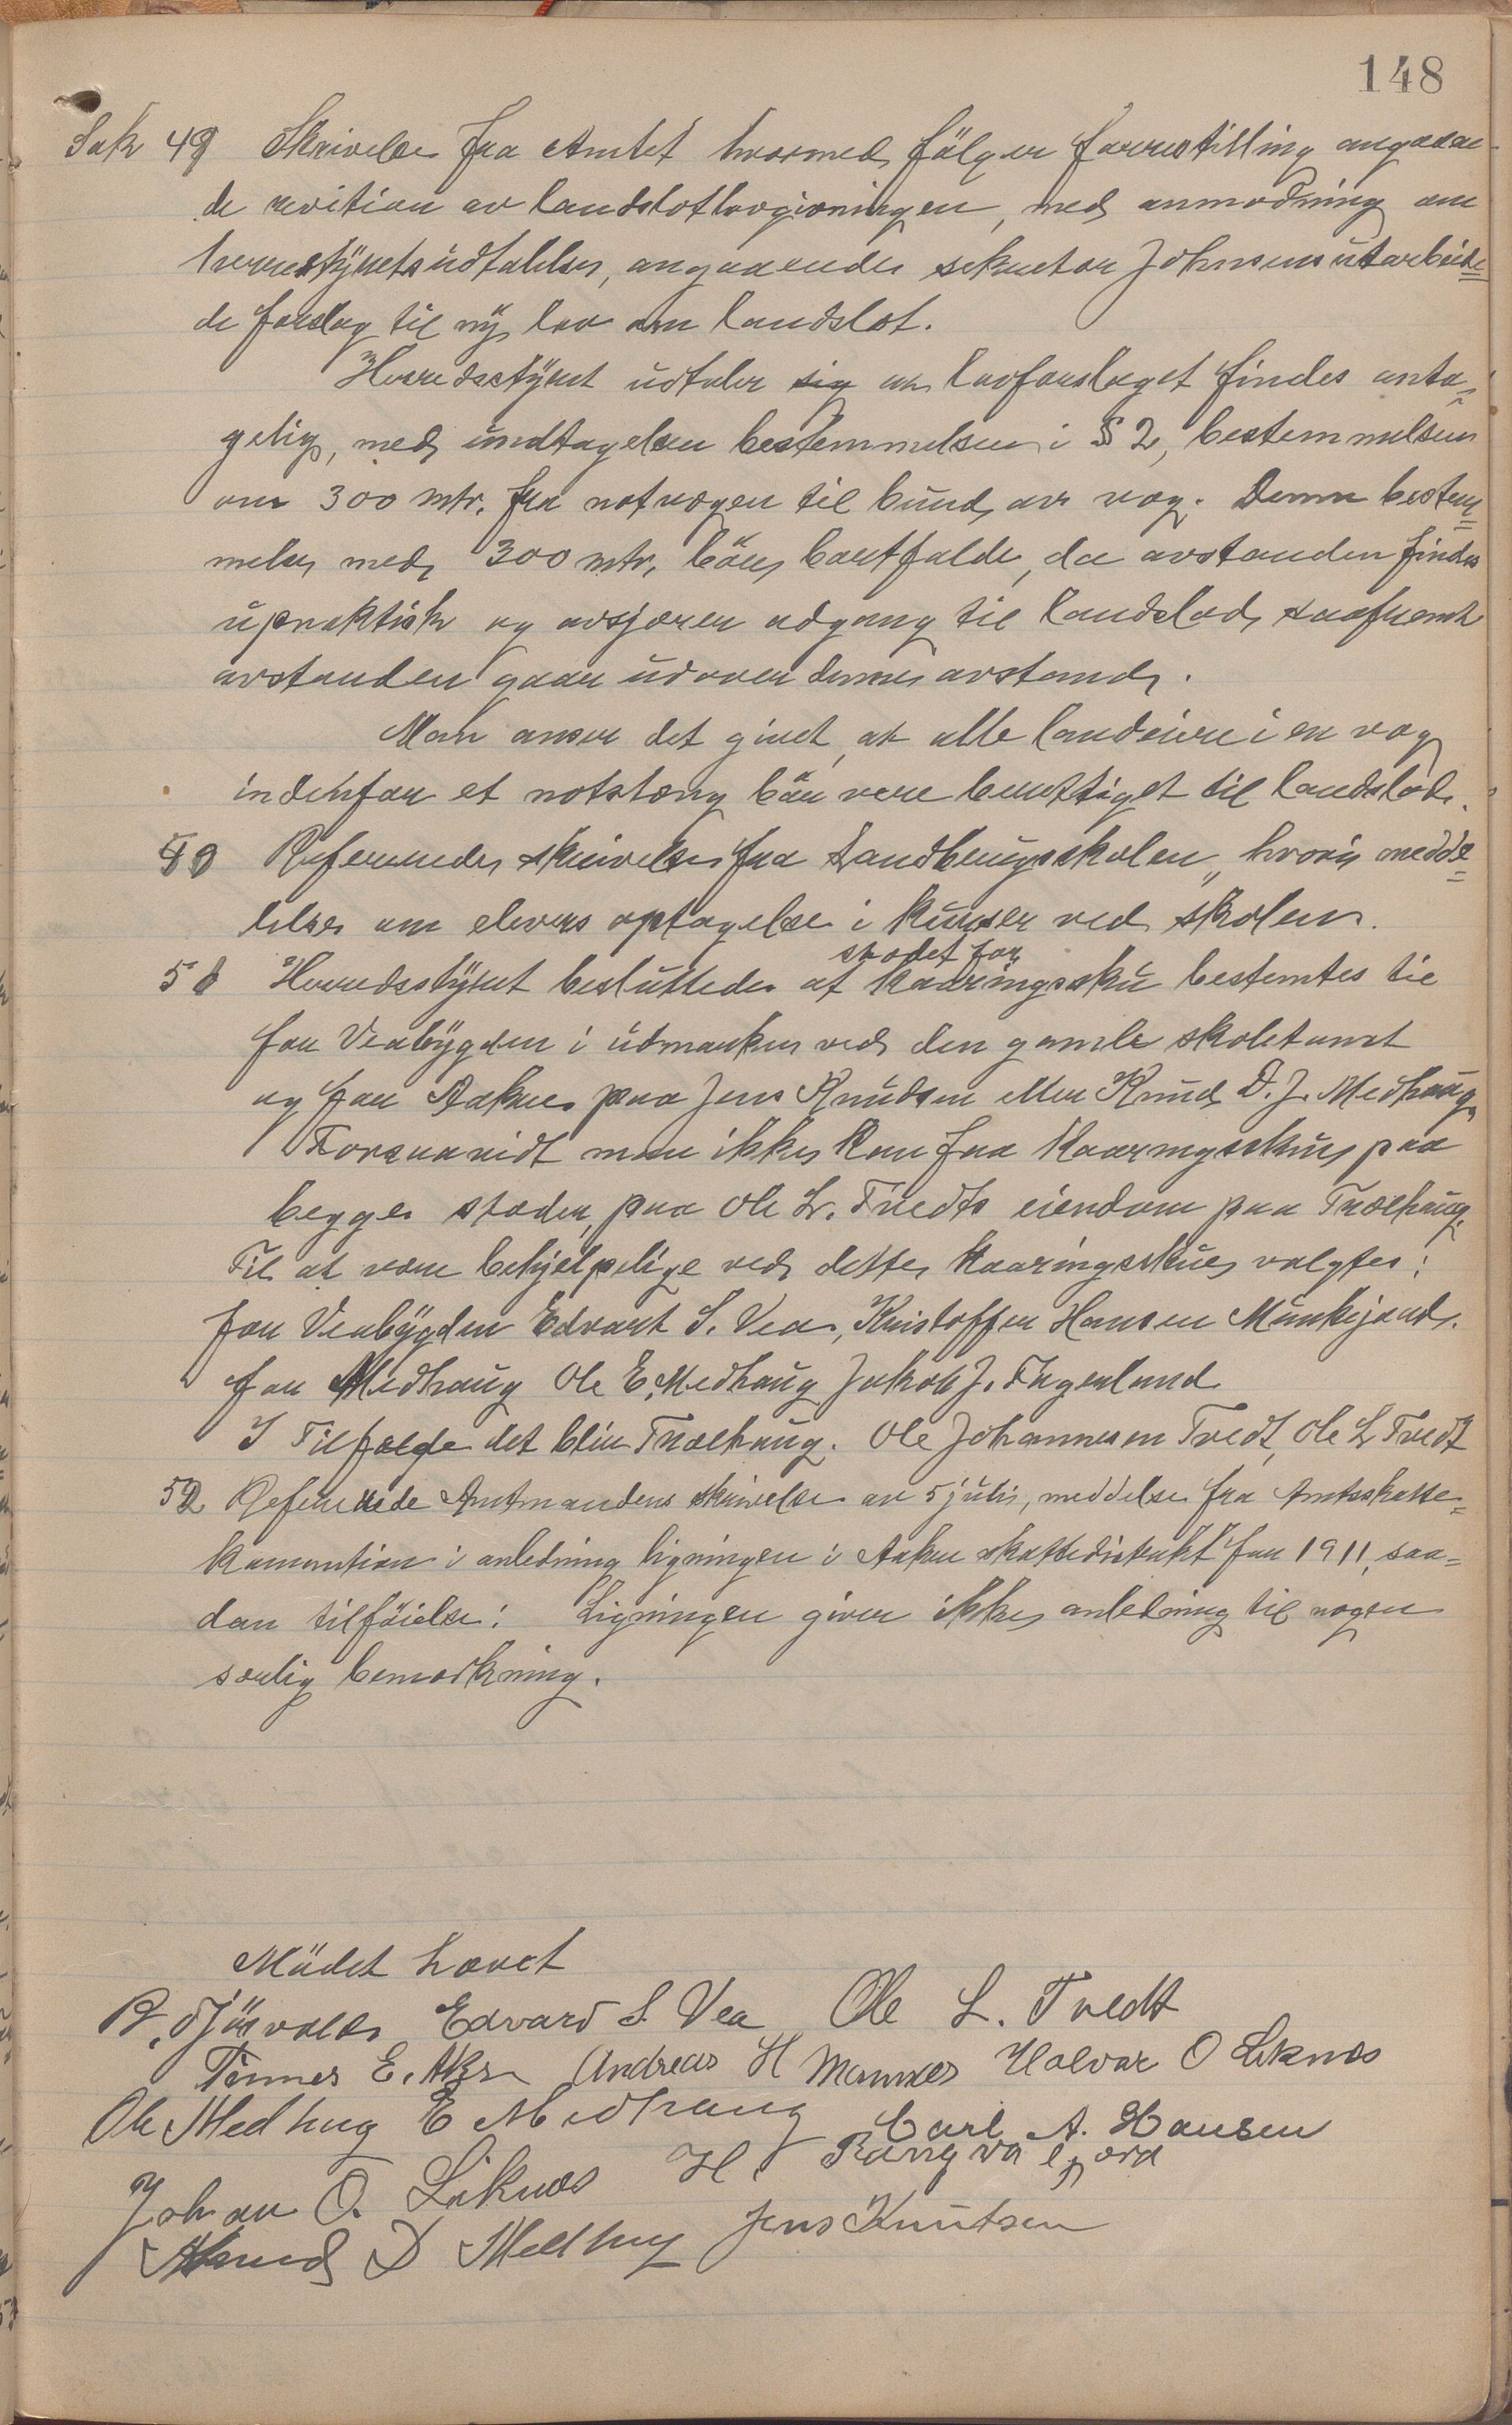 148
Sak 49 Skrivelse fra Amtet hvormed fölger forrestilling angaaen-
de revition av landslotlovgivningen, med anmodning om
herrestyrets udtalelse, angaaende sekretær Johnsens utarbeide=
de forslag til ny lov om landslot.
Herredsstyret udtaler sig at lovforslaget findes anta-
gelig, med undtagelsen bestemmelsen i § 2, bestemmelsen
om 300 mtr. fra notvægen til bund av vog. Denne bestem=
melse med 300 mtr. bör bortfalde, da avstanden findes
upraktisk og avsjærer adgang til landslod, saafremt
avstanden gaar udover denne avstand.
Man anser det givet, at alle landeiere i en vog
indenfor et notstæng bör vere berettiget til landslod.
50 Refererede skrivelse fra Landbrugsskolen, hvori medde=
lelse om elevers optagelse i kurser ved skolen.
stedet for
51 Herredsstyret besluttede at kaaringssku bestemtes til
for Veabygden i udmarken ved den gamle skoletomt
og for Aakre paa Jens Knudsen eller Knud D. J. Medhaug.
Forsaavidt man ikke kan faa Kaaringsskue paa
begge steder, paa Ole L. Tvedts eiendom paa Trælhaug.
Til at være behjelpelige ved dette Kaaringsskue valgtes:
for Veabygden Edvart S. Vea, Kristoffer Hansen Munkejord.
for Medhaug Ole E. Medhaug Jakob J.
I Tilfælde det blir Trælhaug. Ole Johannesen Tvedt, Ole L Tvedt
52 Refererede Amtmandens skrivelse av 5 juli, meddelse fra Amtsskatte=
komention i anledning ligningen i Aakre skattedistrikt for 1911, saa=
dan tilföielse: Ligningen giver ikke anledning til nogen
særlig bemærkning.
Mödet hævet
Edvard S. Vea Ole L. Tvedt
Tönnes E. Andreas H Mannes Halvor O Liknes
Ole Medhug E Medhaug Carl A. Hansen
Johan O. Liknes H.
Knud D Medhug Jens Knutsen